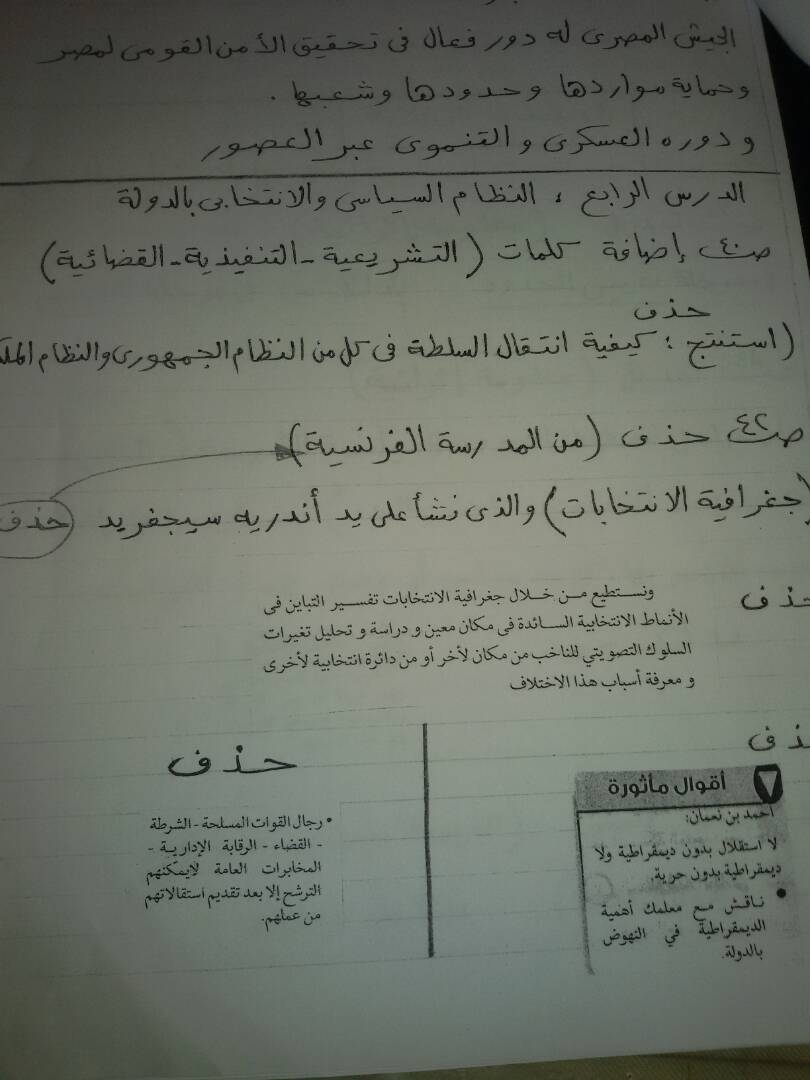 الجيش المصرى له دور فعال فى تحقيق الأمن القومى لمصر
وحماية مواردها وحدودها وشعبها .
ودوره العسكرى والتنموى عبر العصور
الدرس الرابع : النظام السياسى والانتخابى بالدولة
ص٤٠ إضافة كلمات (التشريعية - التنفيذية - القضائية)
حذف
(استنتج : كيفية انتقال السلطة فى كل من النظام الجمهورى والنظام الملك
ص٤٢ حذف (من المدرسة الفرنسية)
(جغرافية الانتخابات) والذى نشأ على يد أندريه سيجفريد حذف
حذف
ونستطيع من خلال جغرافية الانتخابات تفسير التباين فى
الأنماط الانتخابية السائدة فى مكان معين و دراسة و تحليل تغيرات
السلوك التصويتي للناخب من مكان لأخر أو من دائرة انتخابية لأخرى
و معرفة أسباب هذا الاختلاف
حذف
أقوال مأثورة
أحمد بن نعمان:
لا استقلال بدون ديمقراطية ولا
ديمقراطية بدون حرية.
• ناقش مع معلمك أهمية
الديمقراطية في النهوض
بالدولة.
حذف
• رجال القوات المسلحة - الشرطة
- القضاء - الرقابة الإدارية -
المخابرات العامة لايمكنهم
الترشح إلا بعد تقديم استقالاتهم
من عملهم.